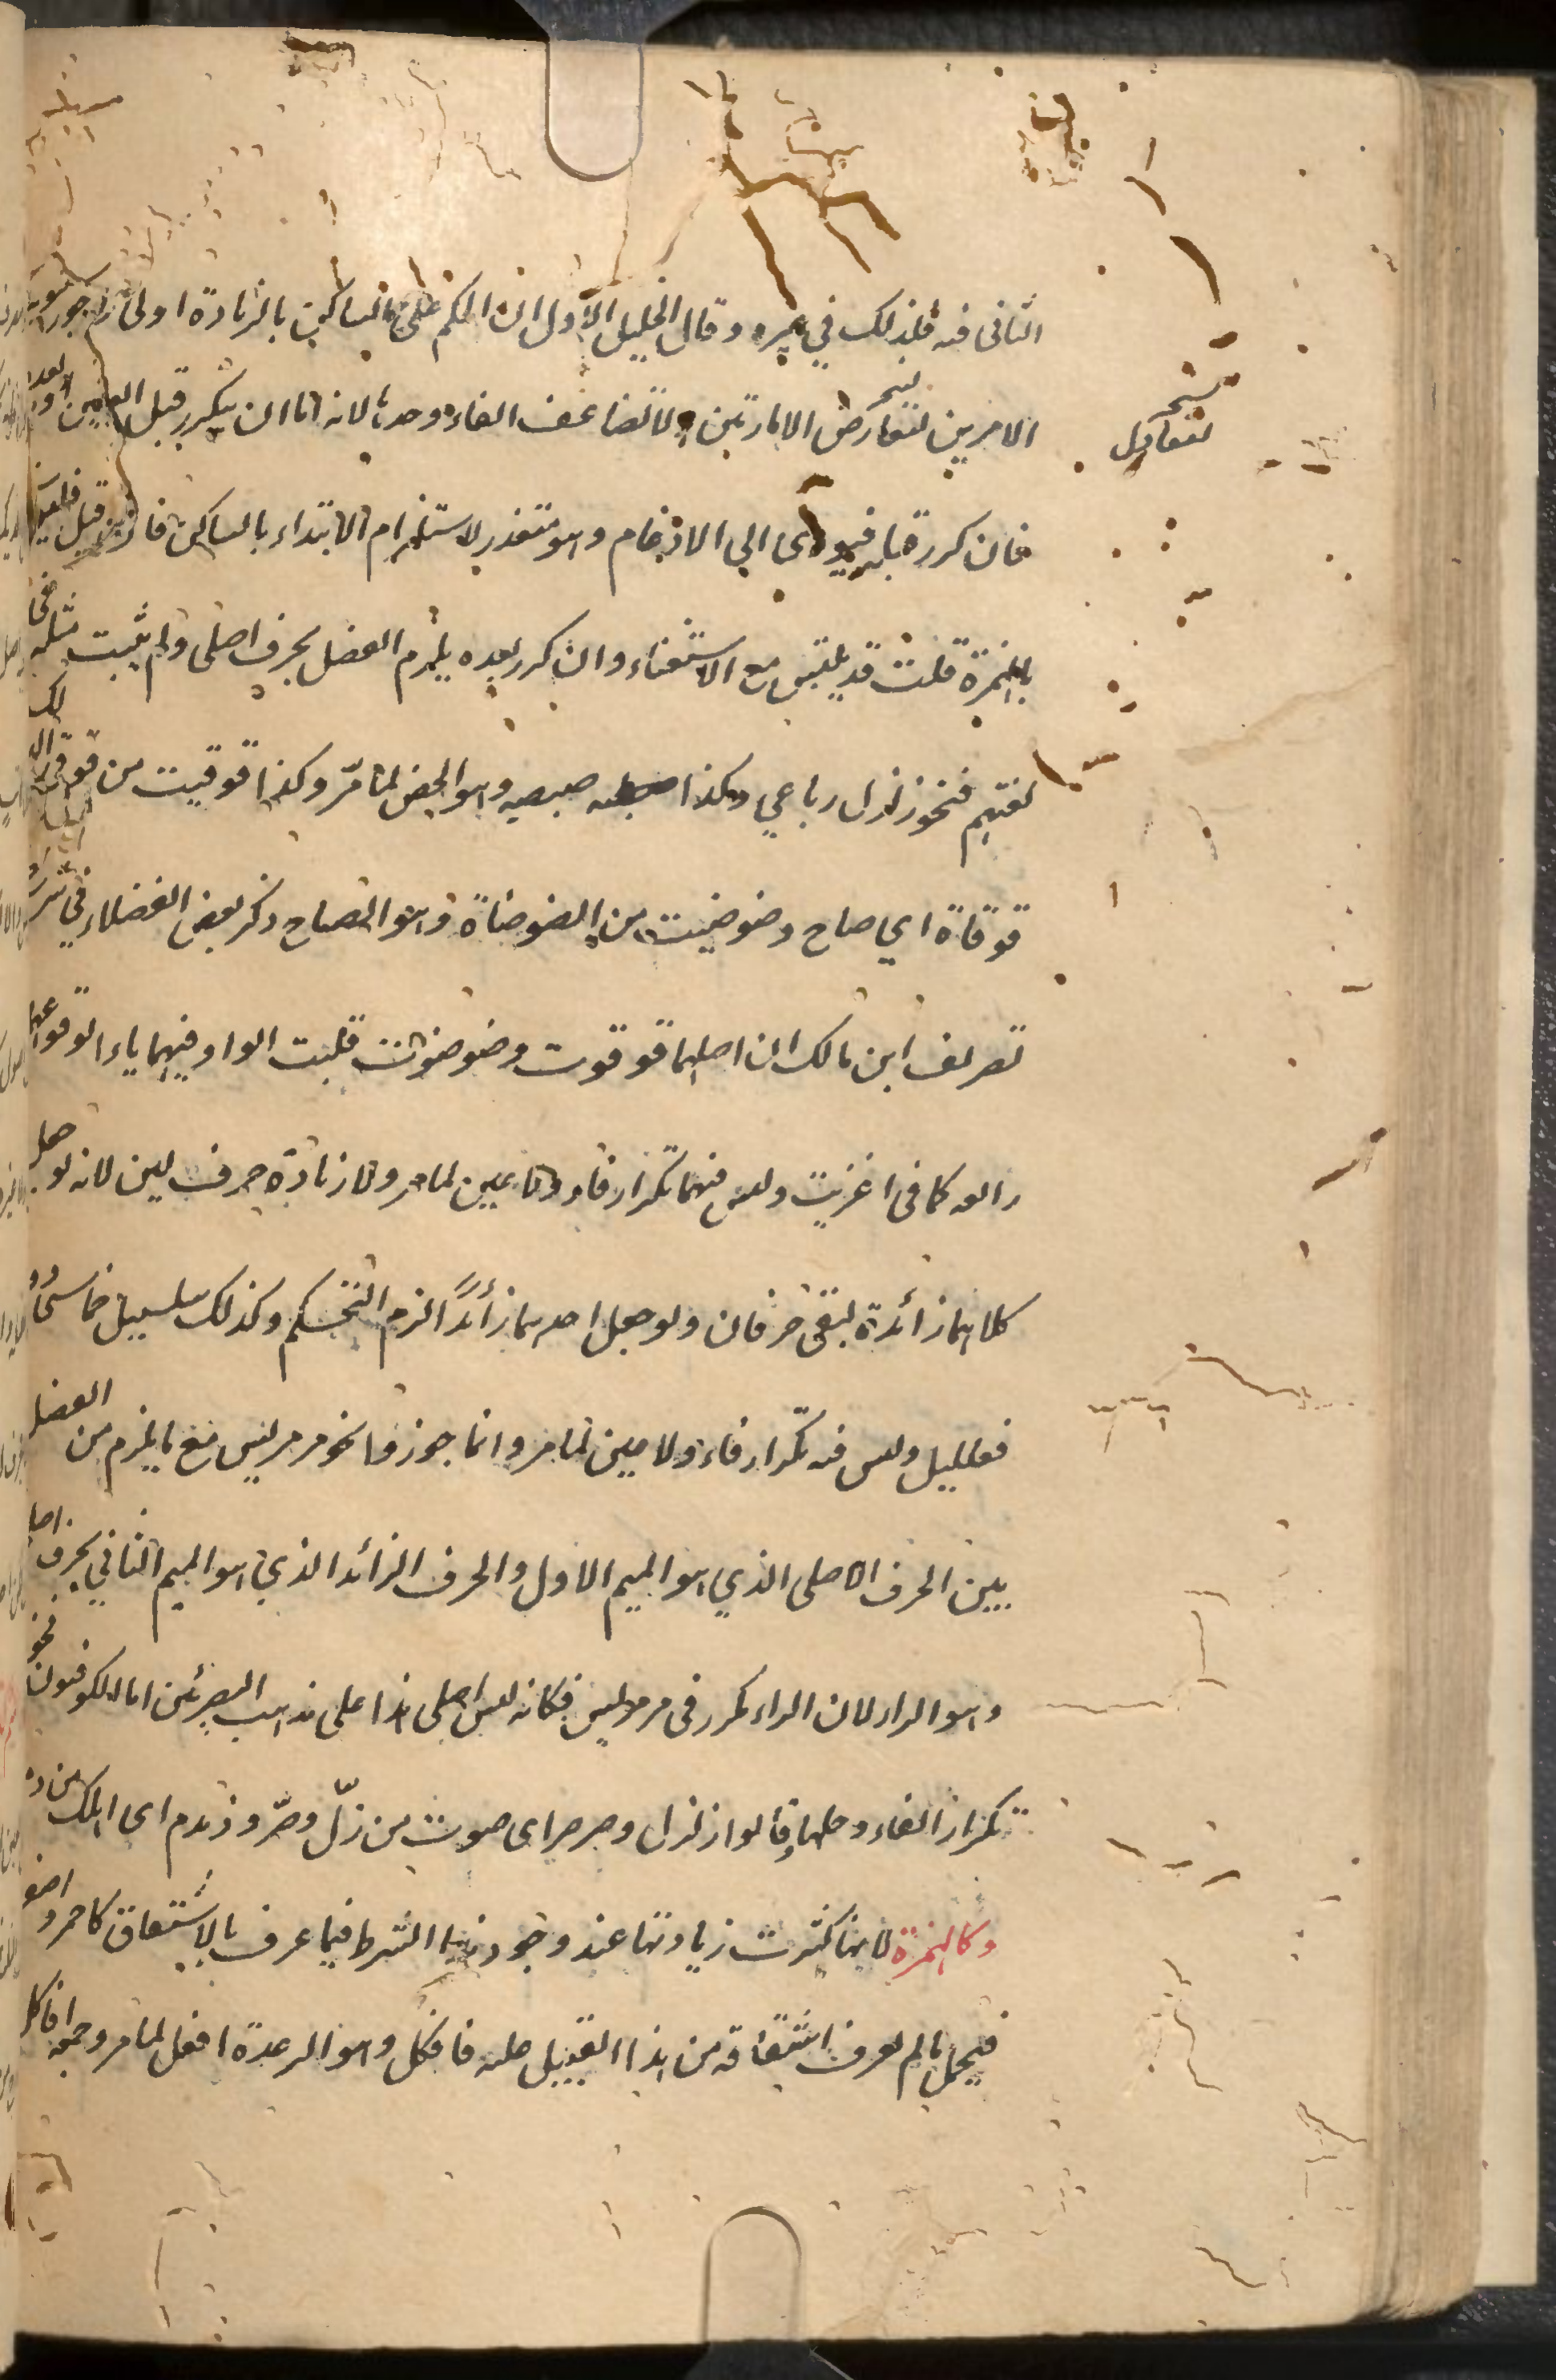 الثانى فيه فكذلك في غيره وقال الخليل الاول لان الحكم على الساكن بالزيادة اولى وجوز سيبويه
الامرين لتعارض الامارتين ولا تضاعف الفاء وحدها لانه اما ان يتكرر قبل العين او بعده
لتعادل
فان كرر قبله فيؤدى الى الادغام وهو متعذر لاستلزام الابتداء بالساكن فان قيل فليجتلب
بالهمزة قلت قد يلتبس مع الاستغناء وان كرر بعده يلزم الفصل بحرف اصلى ولم يثبت مثله فى
لغتهم فنحو زلزل رباعي وكذا صيصية وهو الحصن لما مرّ وكذا قوقيت من قوقى الديك
قوقاة اي صاح وضوضيت من الضوضاة وهو الصياح ذكر بعض الفضلاء في شرح
تصريف ابن مالك ان اصلهما قوقوت وضوضوت قلبت الواو فيهما ياء لوقوعها
رابعة كما فى اغزيت وليس فيهما تكرار فاء ولا عين لما مر ولا زيادة حرف لين لانه لو جعل
كلاهما زائدة لبقى حرفان ولو جعل احدهما زائدًا لزم التحكم وكذلك سلسبيل خماسى
فعلليل وليس فيه تكرار فاء ولا عين لما مر وانما جوزوا نحو مرمريس مع ما يلزم من الفصل
بين الحرف الاصلى الذي هو الميم الاول والحرف الزائد الذي هو الميم الثاني بحرف اصلى
وهو الراء لان الراء مكرر فى مرمريس فكانه ليس اصلى هذا على مذهب البصريين اما الكوفيون
تكرار الفاء وحدها وقالوا زلزل وصرصر اى صوت من زلّ وصرّ ودمدم اى اهلك من دم
وكالهمزة لانها كثرت زيادتها عند وجود هذا الشرط فيما عرف بالاشتقاق كاحمر واصفر
فيحمل ما لم يعرف اشتقاقه من هذا القبيل عليه فافكل وهو الرعدة افعل لما مر وجمعه افاكل